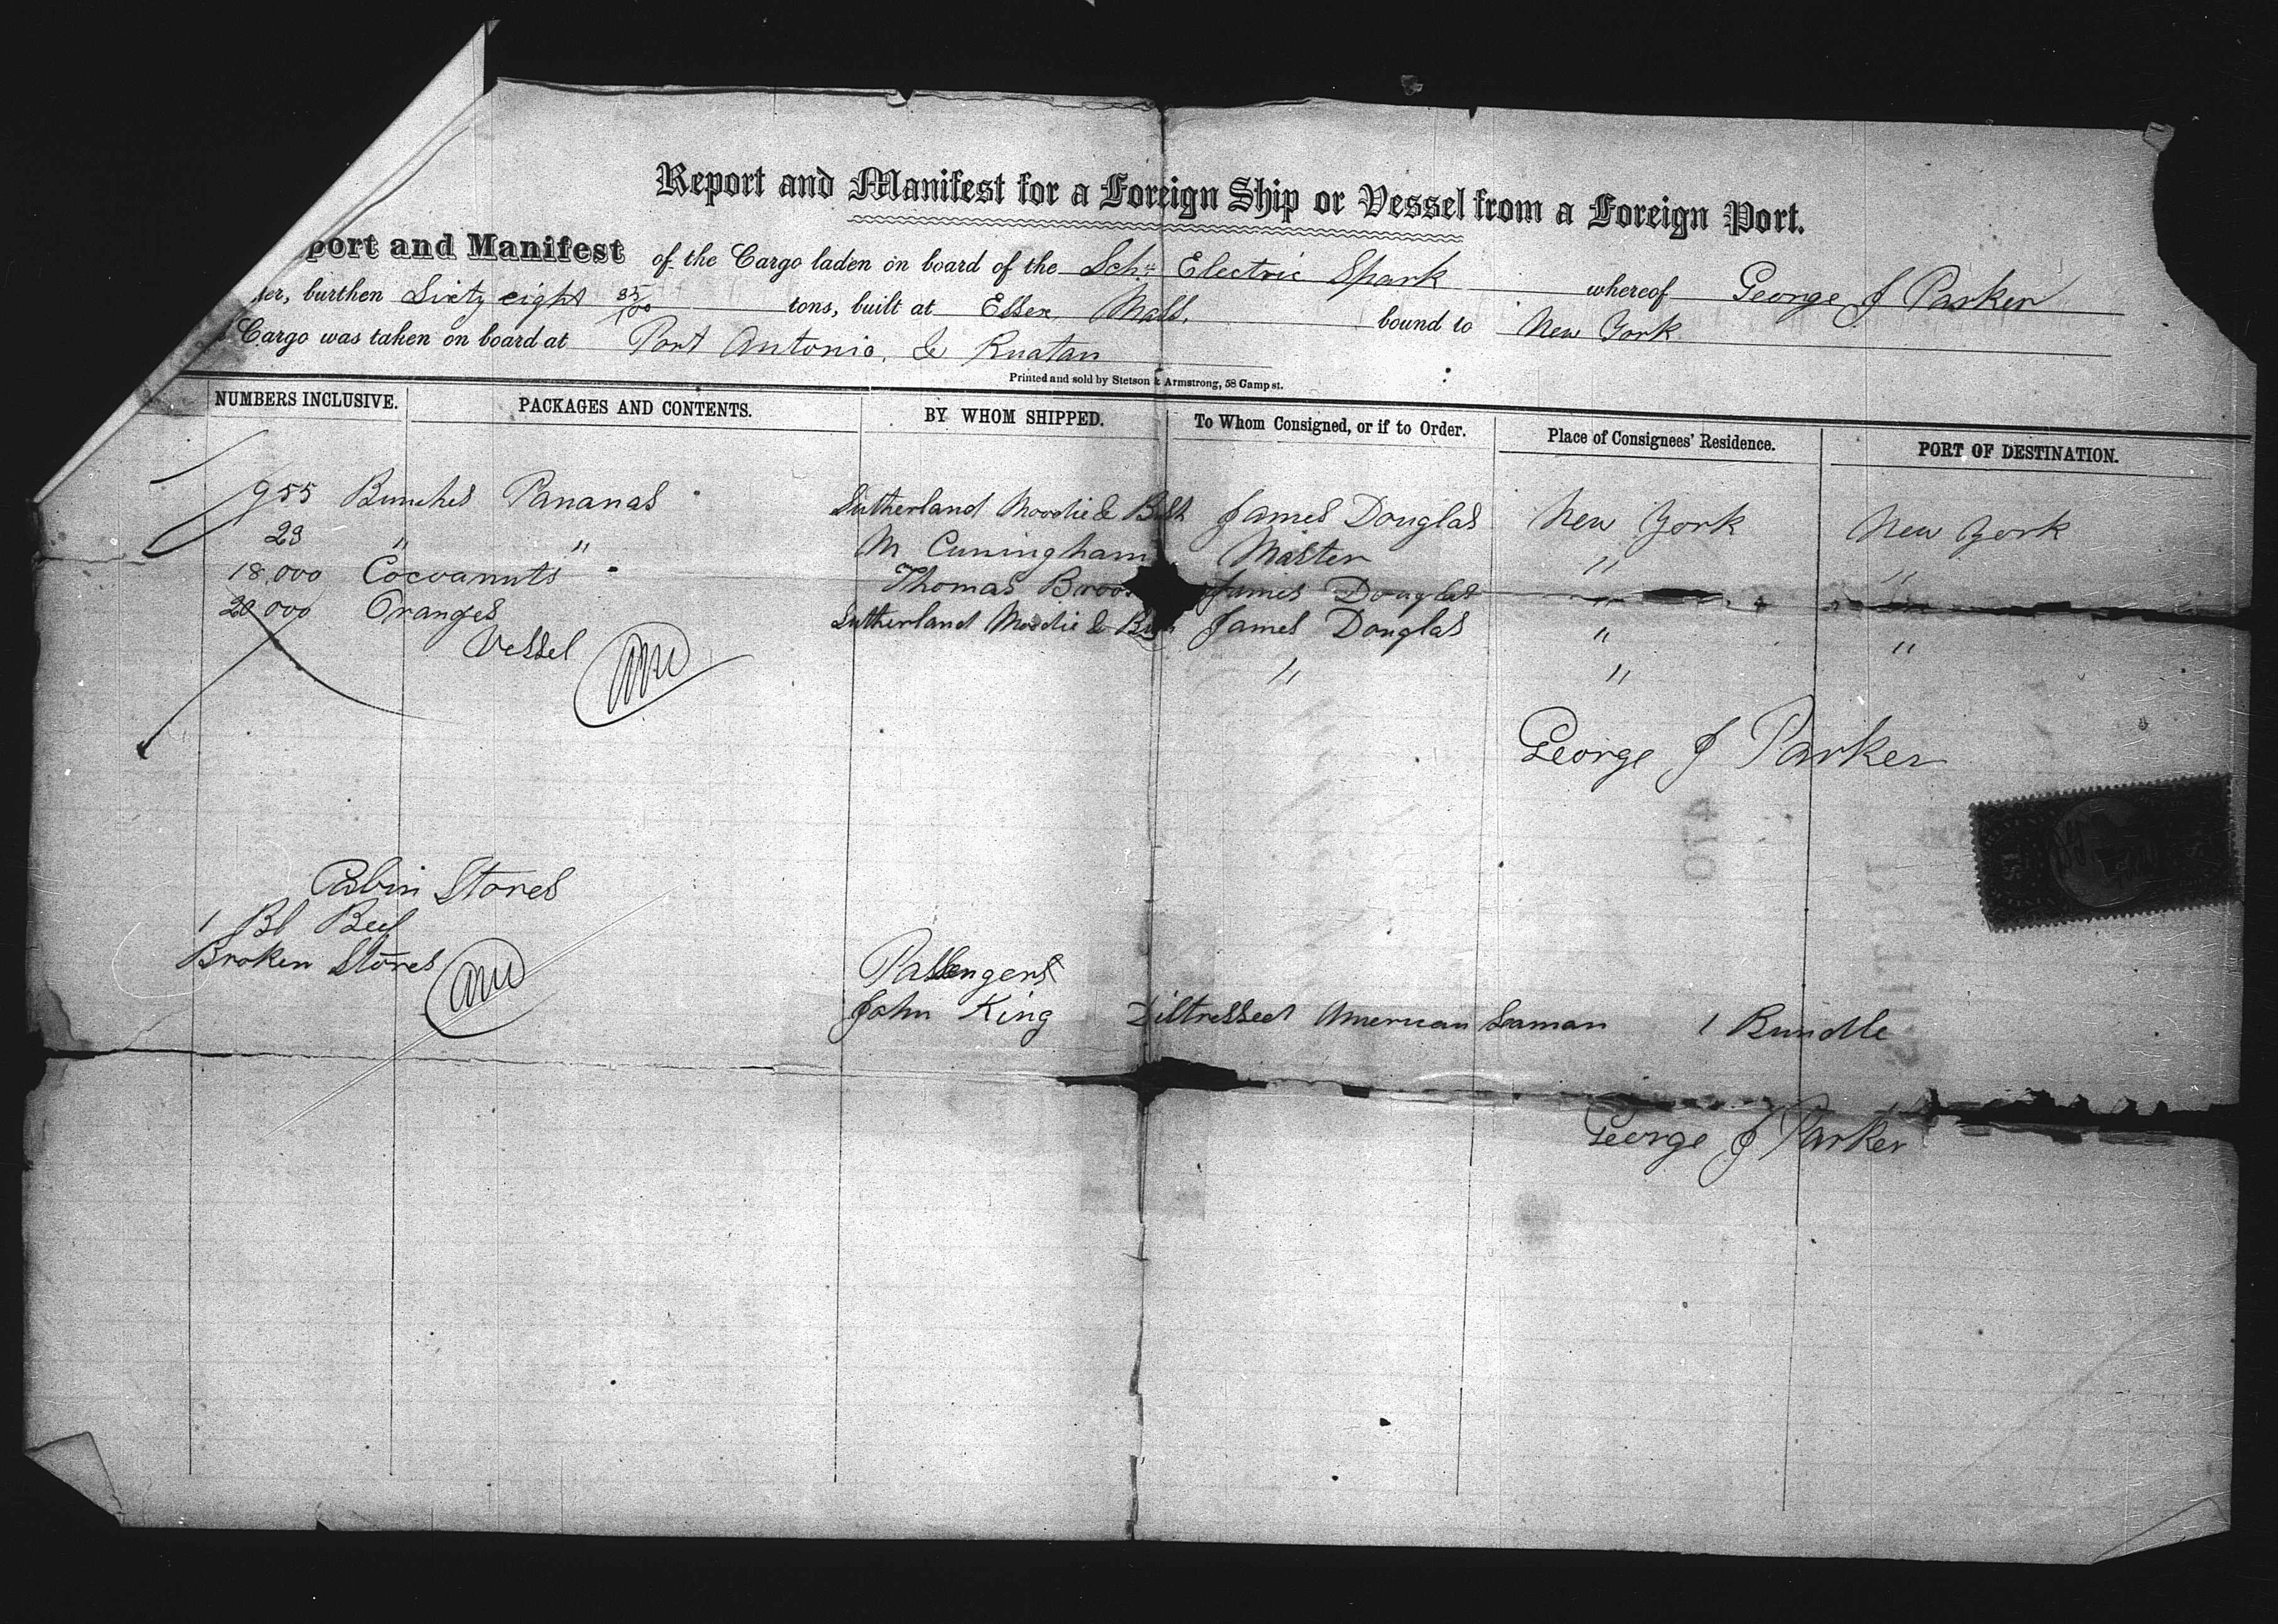 Report and Manifest for a Foreign Ship or Vessel from a Foreign Port.
port and Manifest of the Cargo laden on board of the Schr Electric Spark whereof George J Parker
ter, burthen Sixty eight 85/100 tons, built at Essex Mass. bound to New York
Cargo was taken on board at Port Antonio, & Ruatan
Printed and sold by Stetson & Armstrong, 58 Camp st.
NUMBERS INCLUSIVE. PACKAGES AND CONTENTS. BY WHOM SHIPPED. To Whom Consigned, or if to Order. Place of Consignees' Residence. PORT OF DESTINATION.
955 Bunches Bananas Sutherland Moodie & James Douglas New York New York
23 " " M Cuningham Master " "
18,000 Cocoanuts Thomas James Douglas "
20,000 Oranges Sutherland Moodie & James Douglas " "
Vessel " "
George J Parker
Cabin Stores
1 Bl Beef
Broken Stores
Passengers
John King Distressed American Seaman 1 Bundle
George J Parker